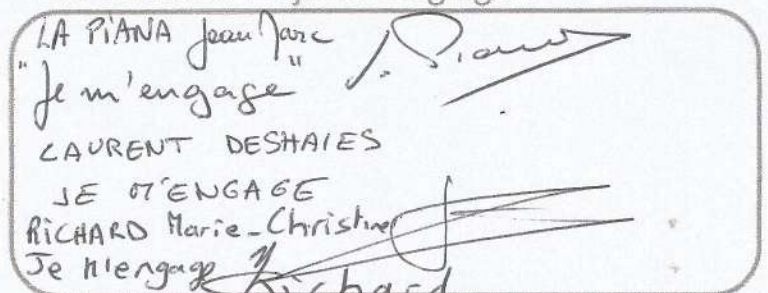 LA PiANA Jean Marc
"Je m'engage" J. Piana
LAURENT DESHAIES
JE M'ENGAGE
RiCHARD Marie-Christine
Je m'engage Richard